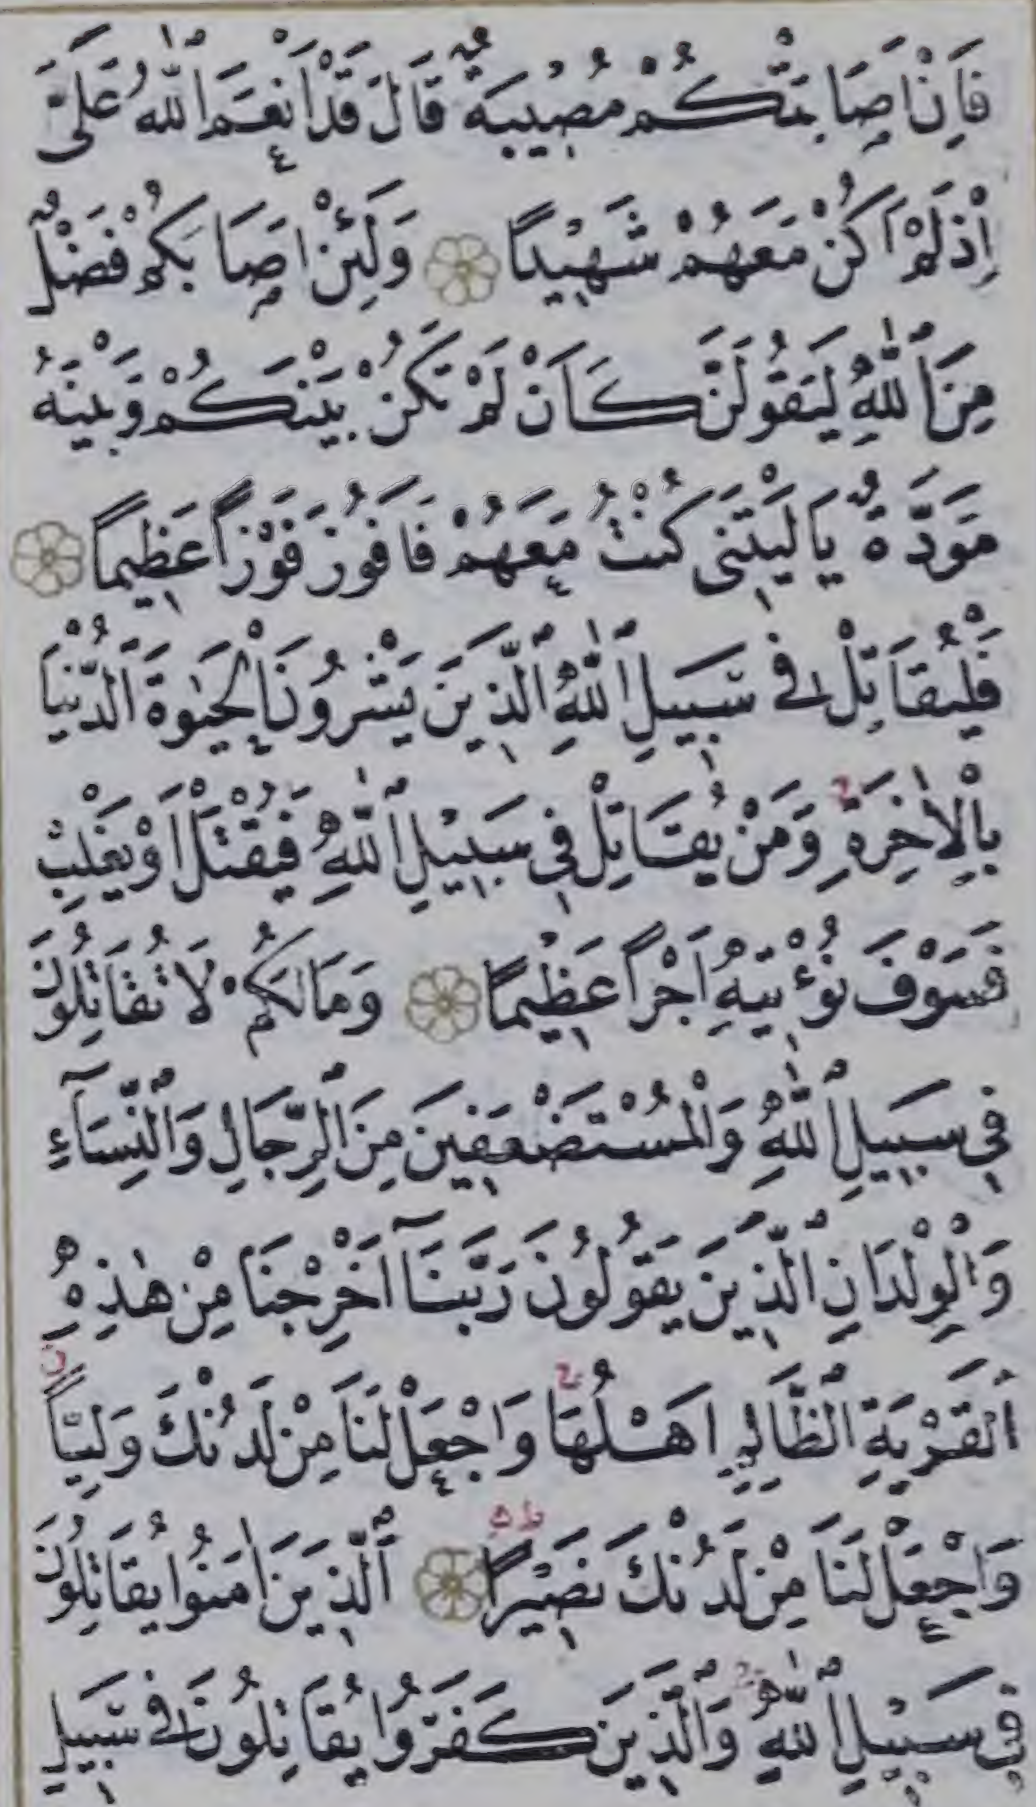 فَاِنْ اَصَابَتْكُمْ مُصِيبَةٌ قَالَ قَدْ اَنْعَمَ ٱللّٰهُ عَلَىَّ
اِذْ لَمْ اَكُنْ مَعَهُمْ شَهِيدًا ۝ وَلَئِنْ اَصَابَكُمْ فَضْلٌ
مِنَ ٱللّٰهِ لَيَقُولَنَّ كَاَنْ لَمْ تَكُنْ بَيْنَكُمْ وَبَيْنَهُ
مَوَدَّةٌ يَا لَيْتَنِى كُنْتُ مَعَهُمْ فَاَفُوزَ فَوْزًا عَظِيمًا ۝
فَلْيُقَاتِلْ فِى سَبِيلِ ٱللّٰهِ ٱلَّذِينَ يَشْرُونَ ٱلْحَيٰوةَ ٱلدُّنْيَا
بِالْاٰخِرَةِ ۚ وَمَنْ يُقَاتِلْ فِى سَبِيلِ ٱللّٰهِ فَيُقْتَلْ اَوْ يَغْلِبْ
فَسَوْفَ نُؤْتِيهِ اَجْرًا عَظِيمًا ۝ وَمَا لَكُمْ لَا تُقَاتِلُونَ
فِى سَبِيلِ ٱللّٰهِ وَٱلْمُسْتَضْعَفِينَ مِنَ ٱلرِّجَالِ وَٱلنِّسَآءِ
وَٱلْوِلْدَانِ ٱلَّذِينَ يَقُولُونَ رَبَّنَآ اَخْرِجْنَا مِنْ هٰذِهِ
ٱلْقَرْيَةِ ٱلظَّالِمِ اَهْلُهَا ۚ وَاجْعَلْ لَنَا مِنْ لَدُنْكَ وَلِيًّا
وَاجْعَلْ لَنَا مِنْ لَدُنْكَ نَصِيرًا ۝ ٱلَّذِينَ اٰمَنُوا يُقَاتِلُونَ
فِى سَبِيلِ ٱللّٰهِ ۚ وَٱلَّذِينَ كَفَرُوا يُقَاتِلُونَ فِى سَبِيلِ